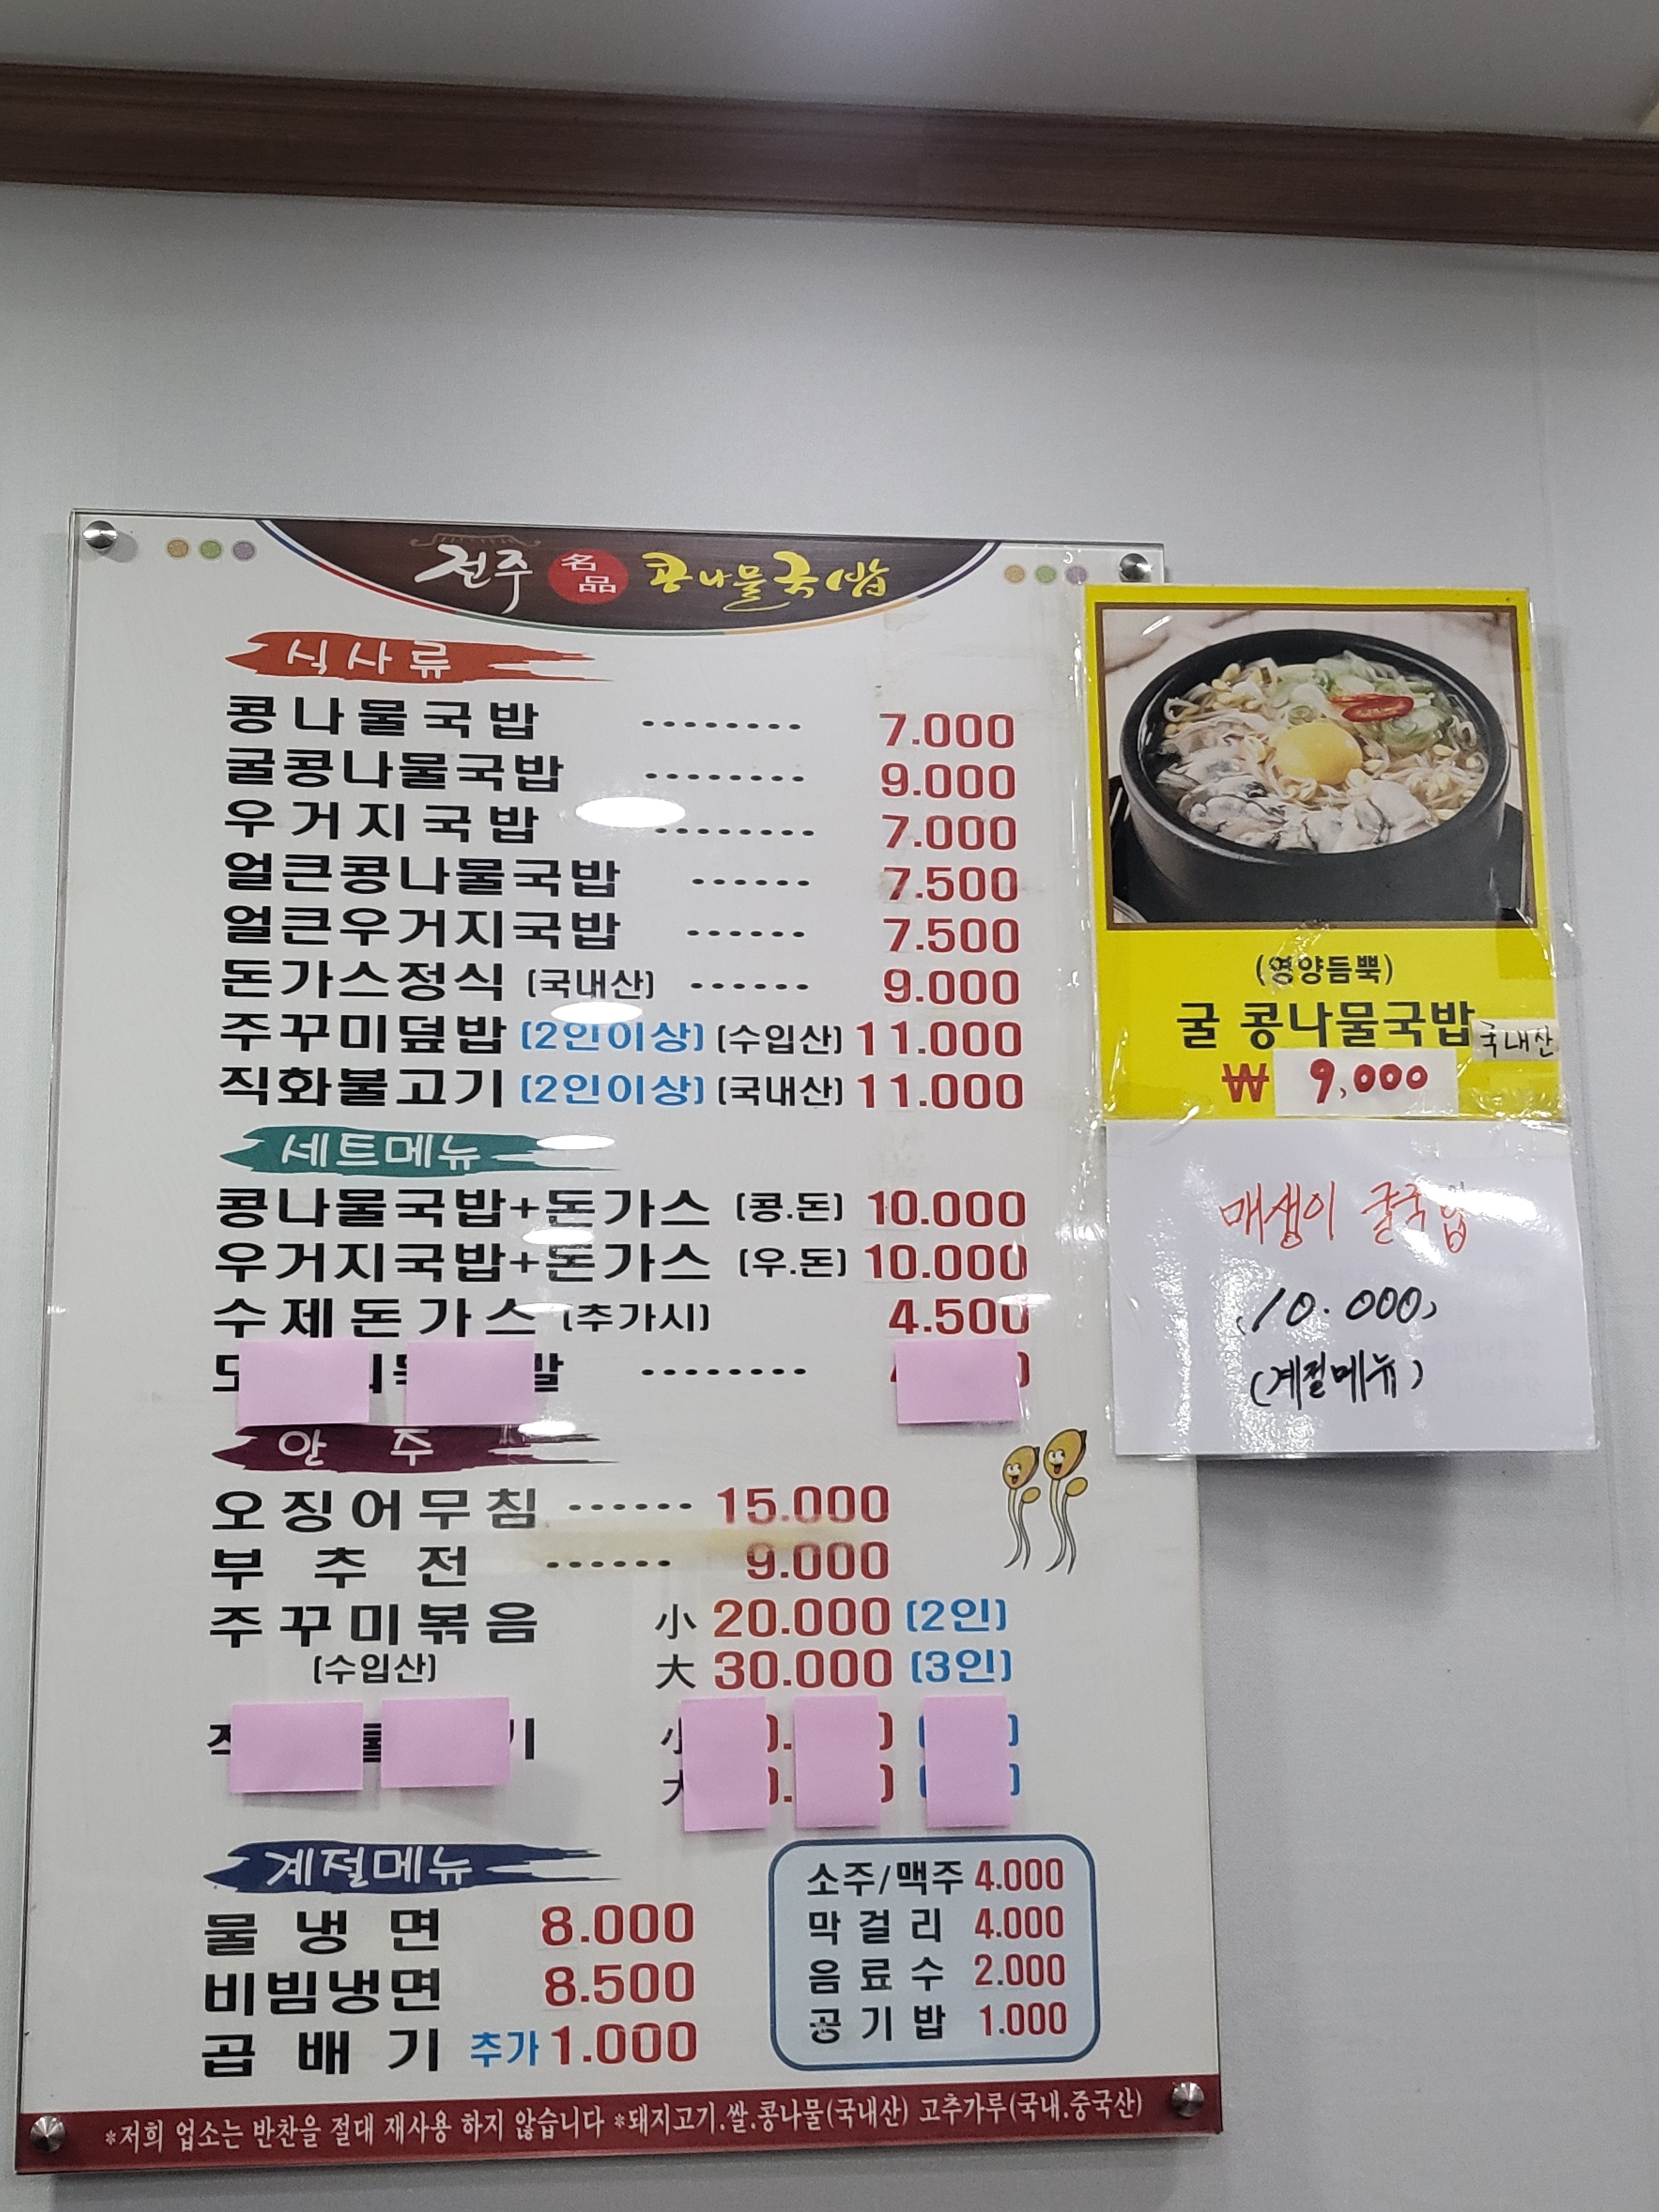 전주 名品 콩나물국밥
식사류
콩나물국밥 -------- 7.000
굴콩나물국밥 -------- 9.000
우거지국밥 -------- 7.000
얼큰콩나물국밥 ------ 7.500
얼큰우거지국밥 ------ 7.500
돈가스정식 (국내산) ------ 9.000
주꾸미덮밥 (2인이상) (수입산) 11.000
직화불고기 (2인이상) (국내산) 11.000
세트메뉴
콩나물국밥+돈가스 (콩.돈) 10.000
우거지국밥+돈가스 (우.돈) 10.000
수제돈가스 (추가시) 4.500
말 --------
안주
오징어무침 ------ 15.000
부추전 ------ 9.000
주꾸미볶음 小 20.000 (2인)
(수입산) 大 30.000 (3인)
기 小
大
계절메뉴
물냉면 8.000
비빔냉면 8.500
곱배기 추가 1.000
소주/맥주 4.000
막걸리 4.000
음료수 2.000
공기밥 1.000
*저희 업소는 반찬을 절대 재사용 하지 않습니다 *돼지고기.쌀.콩나물(국내산) 고추가루(국내.중국산)
(영양듬뿍)
굴 콩나물국밥 국내산
₩ 9,000
매생이 굴국밥
10.000,
(계절메뉴)